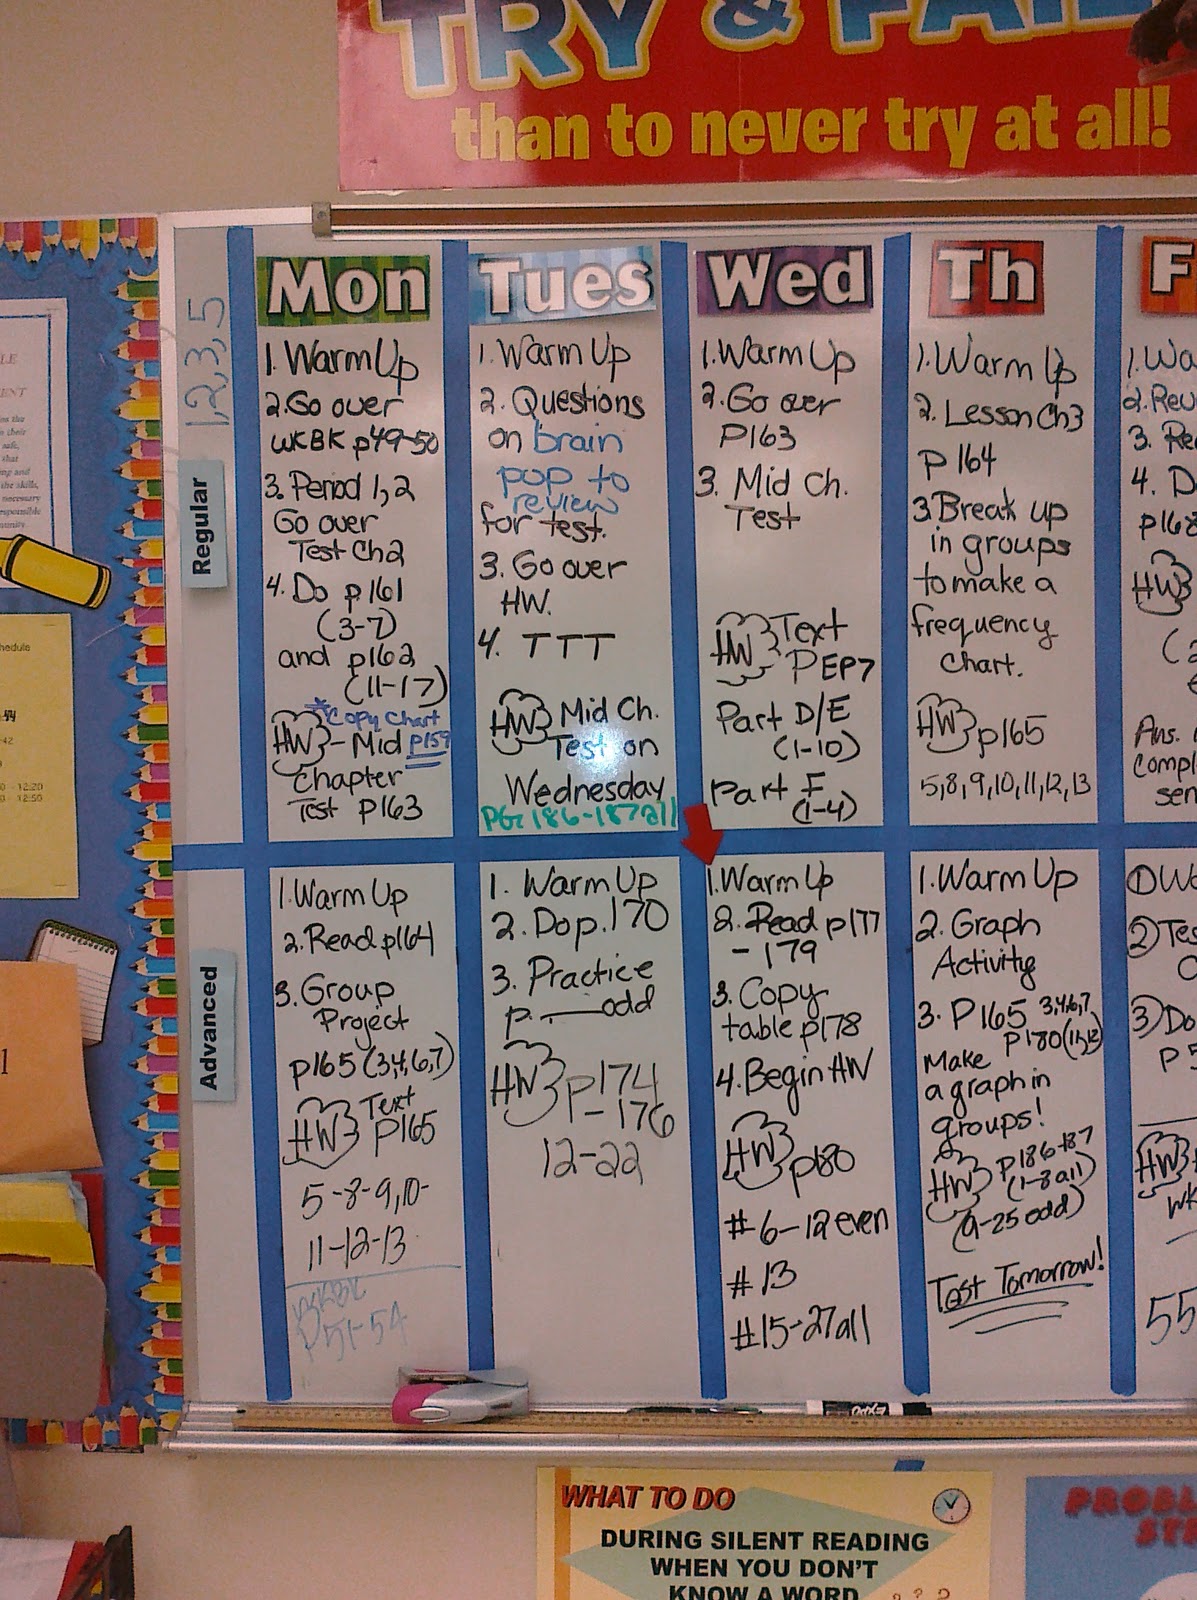 TRY & FAIL
than to never try at all!
1,2,3,5
Regular
Mon
1. Warm Up
2. Go over
WKBK p49-50
3. Period 1,2
Go over
Test Ch2
4. Do p161
(3-7)
and p162
(11-17)
*Copy Chart
HW - Mid p159
Chapter
Test p163
Tues
1. Warm Up
2. Questions
on brain
pop to
review
for test.
3. Go over
HW.
4. TTT
HW Mid Ch.
Test on
Wednesday
PG 186-187 all
Wed
1. Warm Up
2. Go over
P163
3. Mid Ch.
Test
HW Text
P EP7
Part D/E
(1-10)
Part F
(1-4)
Th
1. Warm Up
2. Lesson Ch3
p 164
3 Break up
in groups
to make a
frequency
Chart.
HW p165
5,8,9,10,11,12,13
F
1. Wa
2. Rev
3. Re
4. D
p168
HW
Ans.
Compl
sen
Advanced
1. Warm Up
2. Read p164
3. Group
Project
p165 (3,4,6,7)
HW Text
p165
5-8-9,10-
11-12-13
WKBK
p51-54
1. Warm Up
2. Do p.170
3. Practice
p. ___ odd
HW p174
- 176
12-22
1. Warm Up
2. Read p177
- 179
3. Copy
table p178
4. Begin HW
HW p180
#6-12 even
#13
#15-27 all
1. Warm Up
2. Graph
Activity
3. P165 3,4,6,7
p180(11,12)
Make
a graph in
groups!
HW p186+187
(1-8 all)
(9-25 odd)
Test Tomorrow!
① Wa
② Tes
C
③ Do
p 5
HW
WK
55
WHAT TO DO
DURING SILENT READING
WHEN YOU DON'T
KNOW A WORD
PROBL
ST
hedule
-42
- 12:20
- 12:50